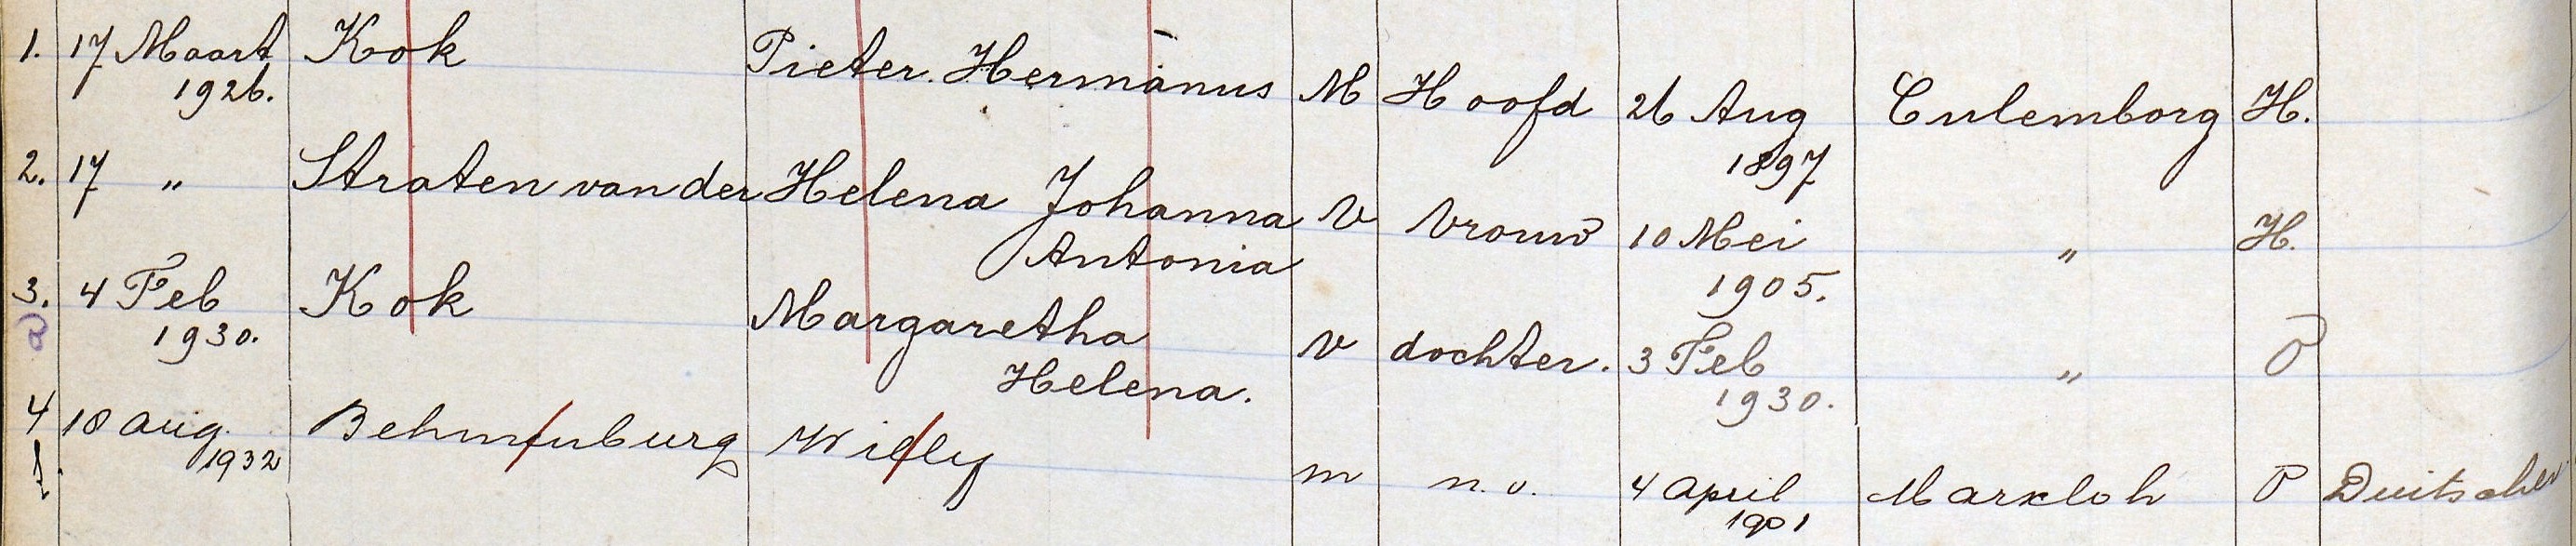 1. 17 Maart Kok Pieter. Hermanus M Hoofd 26 Aug Culemborg H.
1926. 1897
2. 17 „ Straten van der Helena Johanna V Vrouw 10 Mei „ H.
Antonia 1905.
3. 4 Feb Kok Margaretha V dochter. 3 Feb „ P
a 1930. Helena. 1930.
4 18 aug. Behmenburg Willy m n.v. 4 april Marxloh P Duitscher
1932 1901